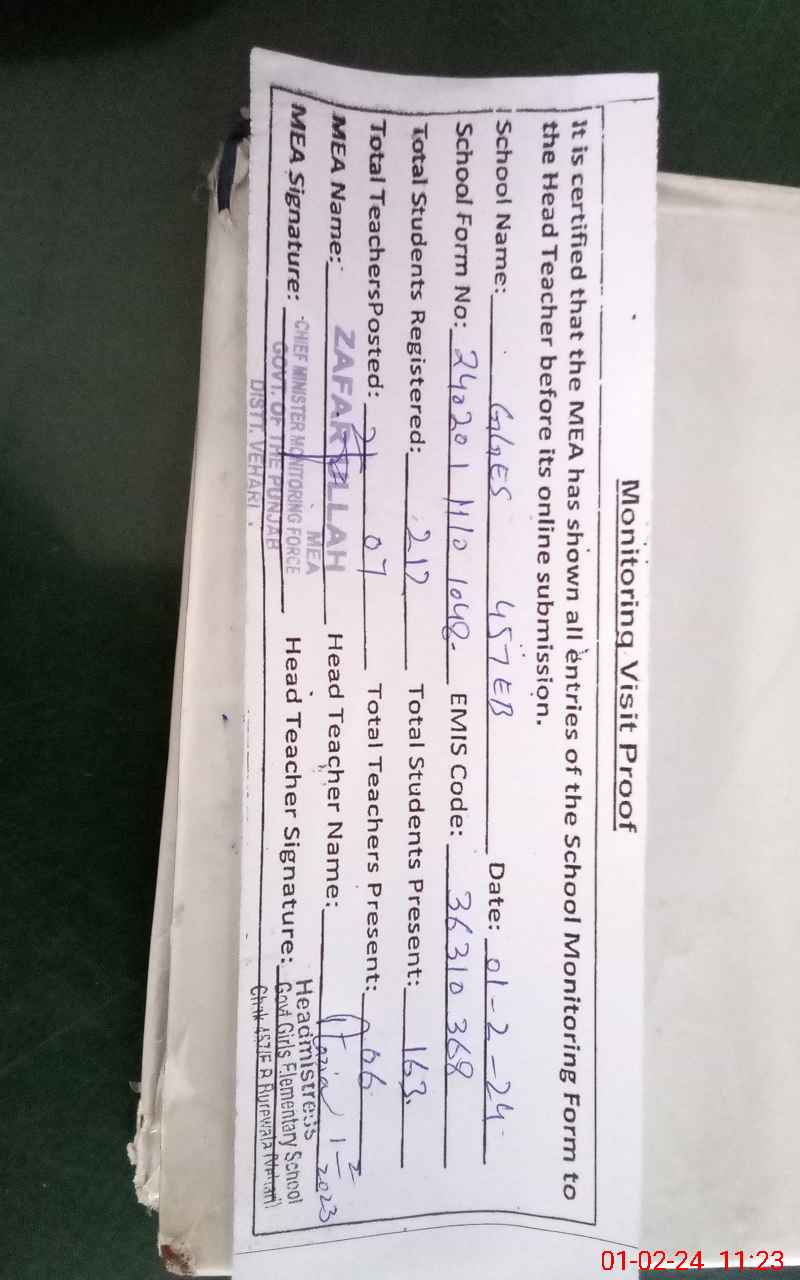 Monitoring Visit Proof
It is certified that the MEA has shown all entries of the School Monitoring Form to
the Head Teacher before its online submission.
School Name: GGES 457 EB Date: 01-2-24
School Form No: 240201 M10 1048. EMIS Code: 36310368
Total Students Registered: 217 Total Students Present: 163.
Total TeachersPosted: 07 Total Teachers Present: 06
MEA Name: ZAFAR ULLAH Head Teacher Name:
MEA
MEA Signature: Head Teacher Signature:
CHIEF MINISTER MONITORING FORCE
GOVT. OF THE PUNJAB
DISTT. VEHARI.
1-2-2023
Headmistress
Govt Girls Elementary School
Chak 457/E.B Burewala (Vehari)
01-02-24 11:23